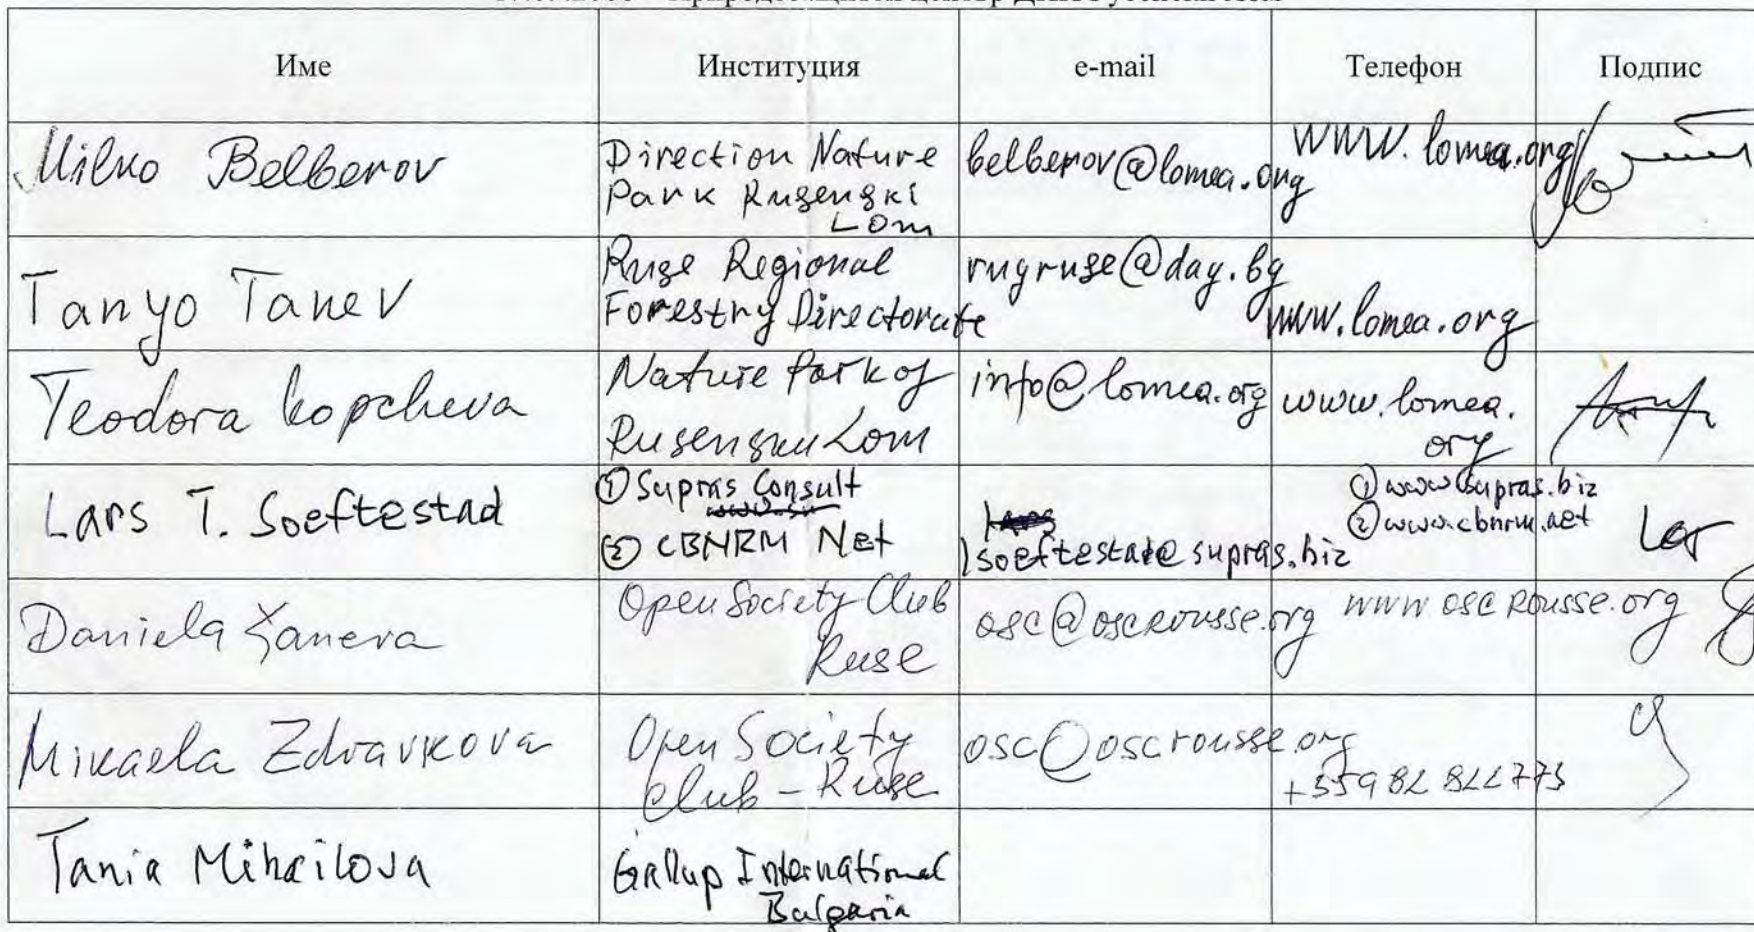 Име Институция e-mail Телефон Подпис
Milko Belberov
Direction Nature
Park Rusenski
Lom
belberov@lomea.org
www.lomea.org
Tanyo Tanev
Ruse Regional
Forestry Directorate
rugruse@day.bg
www.lomea.org
Teodora Kopcheva
Nature Park of
Rusenski Lom
info@lomea.org
www.lomea.
org
Lars T. Soeftestad
① Supras Consult
② CBNRM Net
lsoeftestad@supras.biz
① www.supras.biz
② www.cbnrm.net
Daniela Žaneva
Open Society Club
Ruse
osc@oscrousse.org
www oscrousse.org
Mikaela Zdravkova
Open Society
Club – Ruse
osc@oscrousse.org
+359 82 822773
Tania Mihailova
Gallup International
Bulgaria